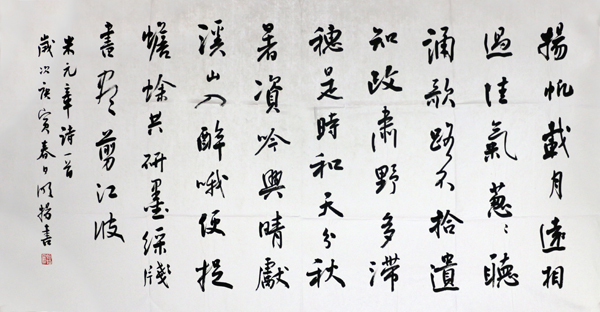 揚帆載月遠相
過佳氣蔥〻聽
誦歌路不拾遺
知政肅野多滯
穗是時和天分秋
暑資吟興晴獻
溪山入醉哦便捉
蟾蜍共研墨綵牋
書盡剪江波
米元章詩一首
歲次庚寅春日揚書